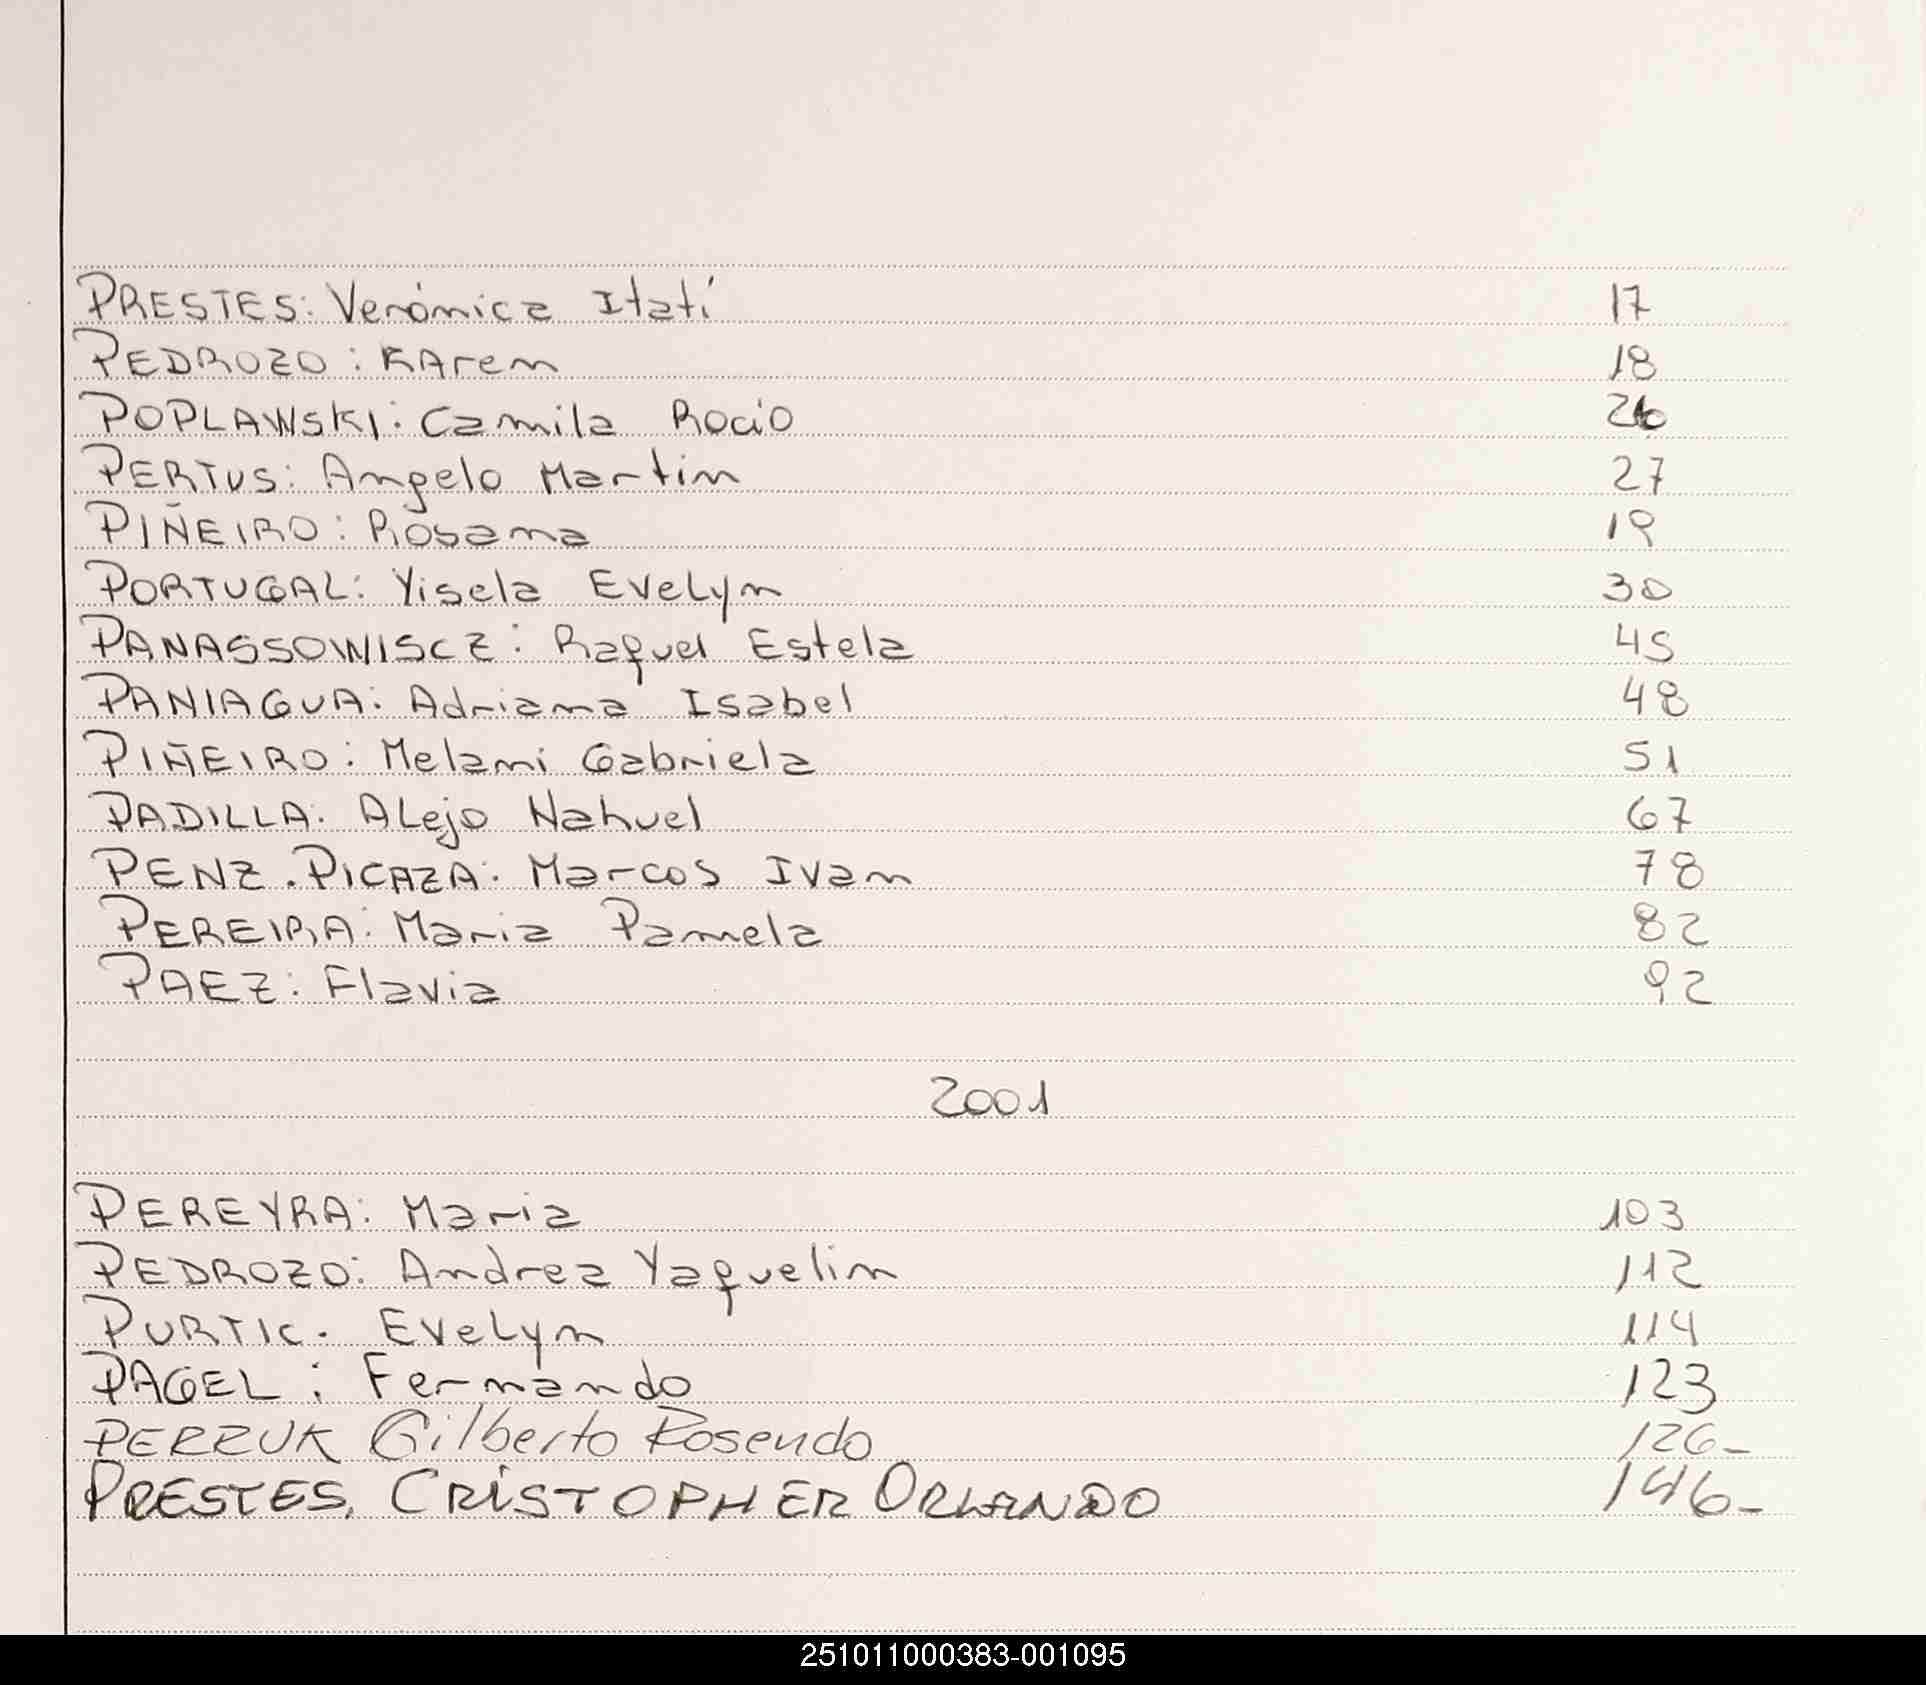 PRESTES: Verónica Itatí 17
PEDROZO: KAren 18
POPLAWSKI: Camila Rocío
PERTUS: Angelo Martin 27
PIÑEIRO: Rosana 19
PORTUGAL: Yisela Evelyn 30
PANASSOWISCZ: Raquel Estela 45
PANIAGUA: Adriana Isabel 48
PIÑEIRO: Melani Gabriela 51
PADILLA: Alejo Nahuel 67
PENZ. PICAZA: Marcos Ivan 78
PEREIRA: Maria Pamela 82
PAEZ: Flavia 92
2001
PEREYRA: Maria 103
PEDROZO: Andrea Yaquelin 112
PURTIC. Evelyn 114
PAGEL: Fernando 123
PERZUK Gilberto Rosendo 126-
PRESTES, CRISTOPHER ORLANDO 146-
251011000383-001095